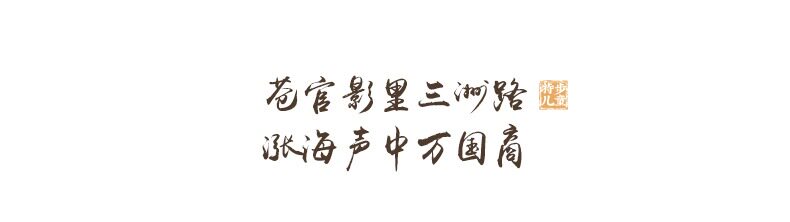 苍官影里三洲路
特步儿童
涨海声中万国商